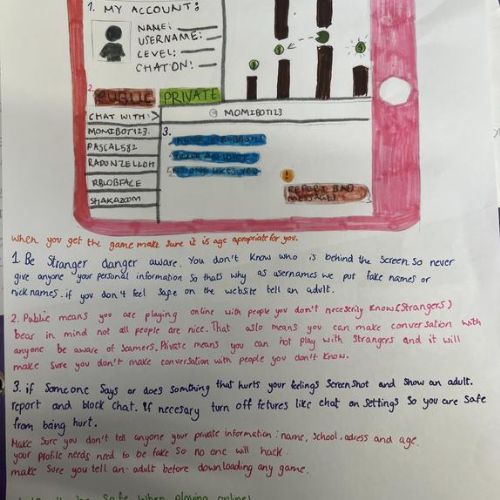 1. MY ACCOUNT:
NAME:
USERNAME:
LEVEL:
CHAT ON:
2. PUBLIC PRIVATE
CHAT WITH:
MOMIBOT123
MOMIBOT123.
PASCAL582
RAPUNZELLOH
RBLOBFACE
SHAKAZOOM
3.
!
REPORT BAD
MESSAGES
when you get the game make sure it is age apropriate for you.
1. Be Stranger danger aware. You don't know who is behind the screen. So never
give anyone your personal information so thats why as usernames we put fake names or
nicknames. if you don't feel safe on the website tell an adult.
2. Public means you are playing online with people you don't neceserily know (strangers)
bear in mind not all people are nice. That aslo means you can make conversation with
anyone be aware of scamers. Private means you can not play with strangers and it will
make sure you don't make conversation with people you don't know.
3. if Someone Says or does somthing that hurts your feelings Screenshot and Show an adult.
report and block chat. If necesary turn off fetures like chat on settings so you are safe
from being hurt.
Make sure you don't tell anyone your private information: name, school, adress and age.
your profile needs need to be fake so no one will hack.
make sure you tell an adult before downloading any game.
safe when playing online